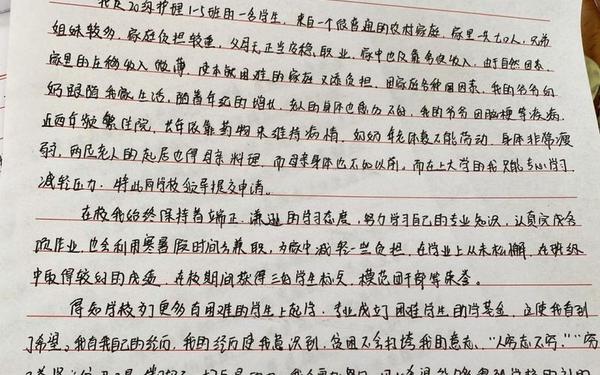 我是20级护理1-5班的一名学生，来自一个很普通的农村家庭，家里一共七口人，兄弟
姐妹较多，家庭负担较重，父母无正当安稳职业，家中也没有多份收入，由于自然因素，
家里的庄稼收入微薄，使本就困难的家庭又添负担，因家庭各种因素，我的爷爷奶
奶跟随我做生活，随着年纪的增长，老人的身体也愈加不好，我的爷爷因脑梗等疾病，
近两年频繁住院，长年依靠药物来维持病情，奶奶年老体衰不能劳动，身体非常瘦
弱，两位老人的起居也得母亲料理，而母亲身体也不如以前。而在上大学的我只能专心学习
减轻压力，特此向学校领导提交申请。
在校我始终保持着端正、谦逊的学习态度，努力学习自己的专业知识，认真完成各
项作业，也会利用寒暑假时间去兼职，为家中减轻一些负担，在学业上从未松懈，在班级
中取得较好的成绩，在校期间获得三好学生标兵，模范团干部等荣誉。
得知学校为了更多有困难的学生上起学，专业成立了困难学生的助学基金，这使我看到
了希望。我自我自己的经历，我的经历使我意识到，贫困不会打垮我的意志，“人穷志不穷。”“穷